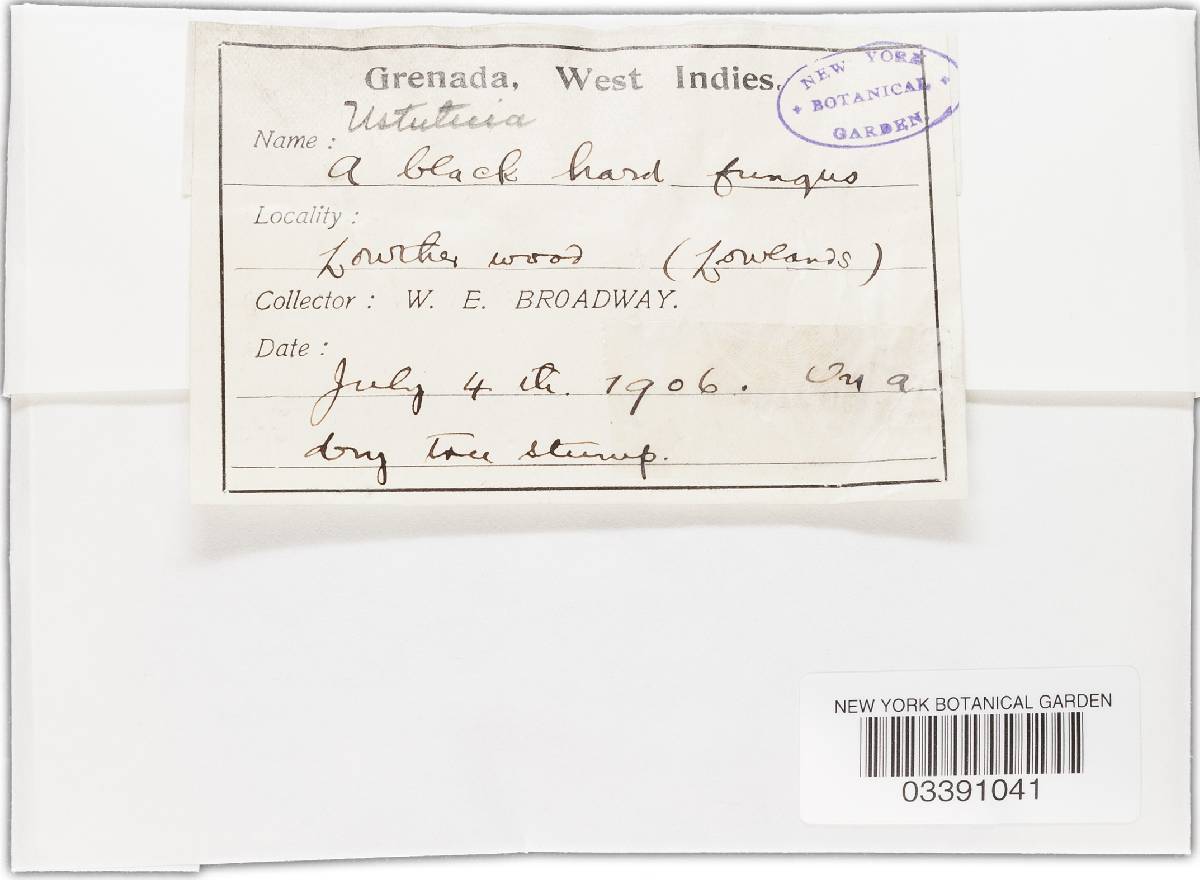 Grenada, West Indies.
NEW YORK
BOTANICAL
GARDEN
Ustulina
Name :
A black hard fungus
Locality :
Lowther wood (Lowlands)
Collector : W. E. BROADWAY.
Date :
July 4 th. 1906. On a
dry tree stump.
NEW YORK BOTANICAL GARDEN
03391041